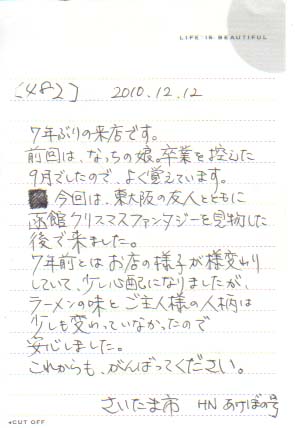 LIFE IS BEAUTIFUL
[482] 2010.12.12
7年ぶりの来店です。
前回は、なっちの娘。卒業を控えた
9月でしたので、よく覚えています。
今回は、東大阪の友人とともに
函館クリスマスファンタジーを見物した
後で来ました。
7年前とはお店の様子が様変わり
していて、少し心配になりましたが、
ラーメンの味とご主人様の人柄は
少しも変わっていなかったので
安心しました。
これからも、がんばってください。
さいたま市 HN あけぼの号
CUT OFF